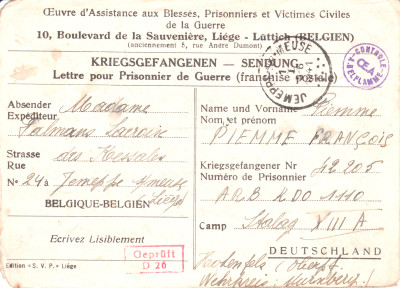 Œuvre d'Assistance aux Blessés, Prisonniers et Victimes Civiles
de la Guerre
10, Boulevard de la Sauvenière, Liége - Lüttich (BELGIEN)
(anciennement 8, rue André Dumont)
KRIEGSGEFANGENEN — SENDUNG
Lettre pour Prisonnier de Guerre (franchise postale)
JEMEPPE-SUR-MEUSE
CONTROLE
Absender
Expéditeur
Madame
Palmans Lacroix
Strasse
Rue
des Messales
N° 24a Jemeppe s/meuse
Liège
BELGIQUE-BELGIEN
Ecrivez Lisiblement
Geprüft
D 26
Edition « S. V. P. » Liége
Name und Vorname
Nom et prénom
Piemme
PIEMME FRANÇOIS
Kriegsgefangener Nr
Numéro de Prisonnier
42205
ARB KDO 1110
Camp
Stalag XIII A
DEUTSCHLAND
Hohenfels (Oberpf.
Wehrkreis: Nürnberg!